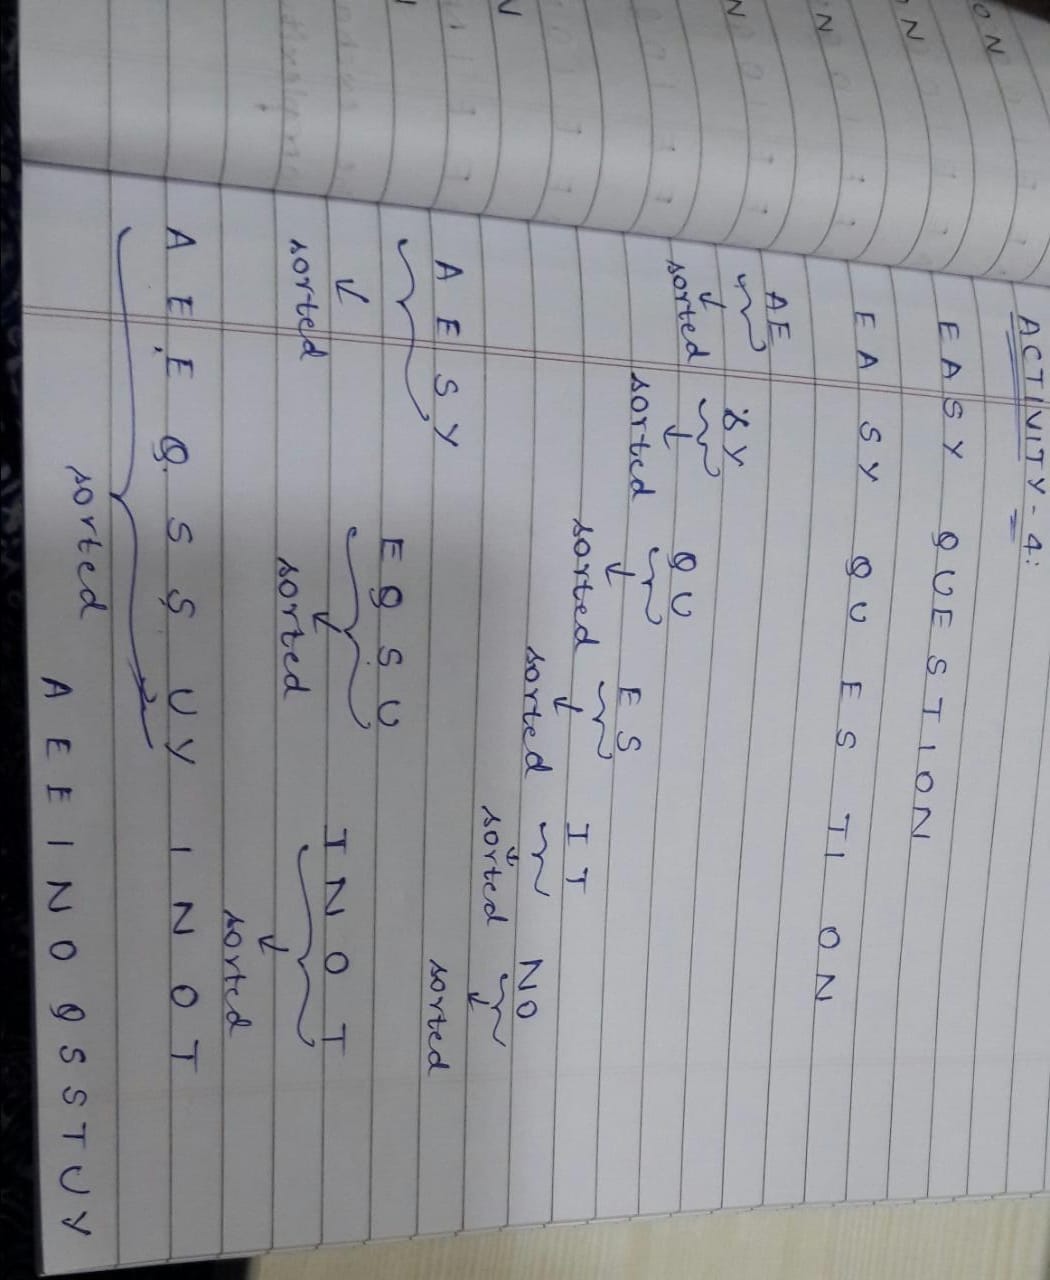 ACTIVITY-4:
EASY QUESTION
EA SY QU ES TI ON
AE
SY
sorted
QU
sorted
ES
sorted
IT
sorted
NO
sorted
sorted
A E S Y
E Q S U
I N O T
sorted
sorted
sorted
A E E Q S S U Y I N O T
sorted
A E E I N O Q S S T U Y